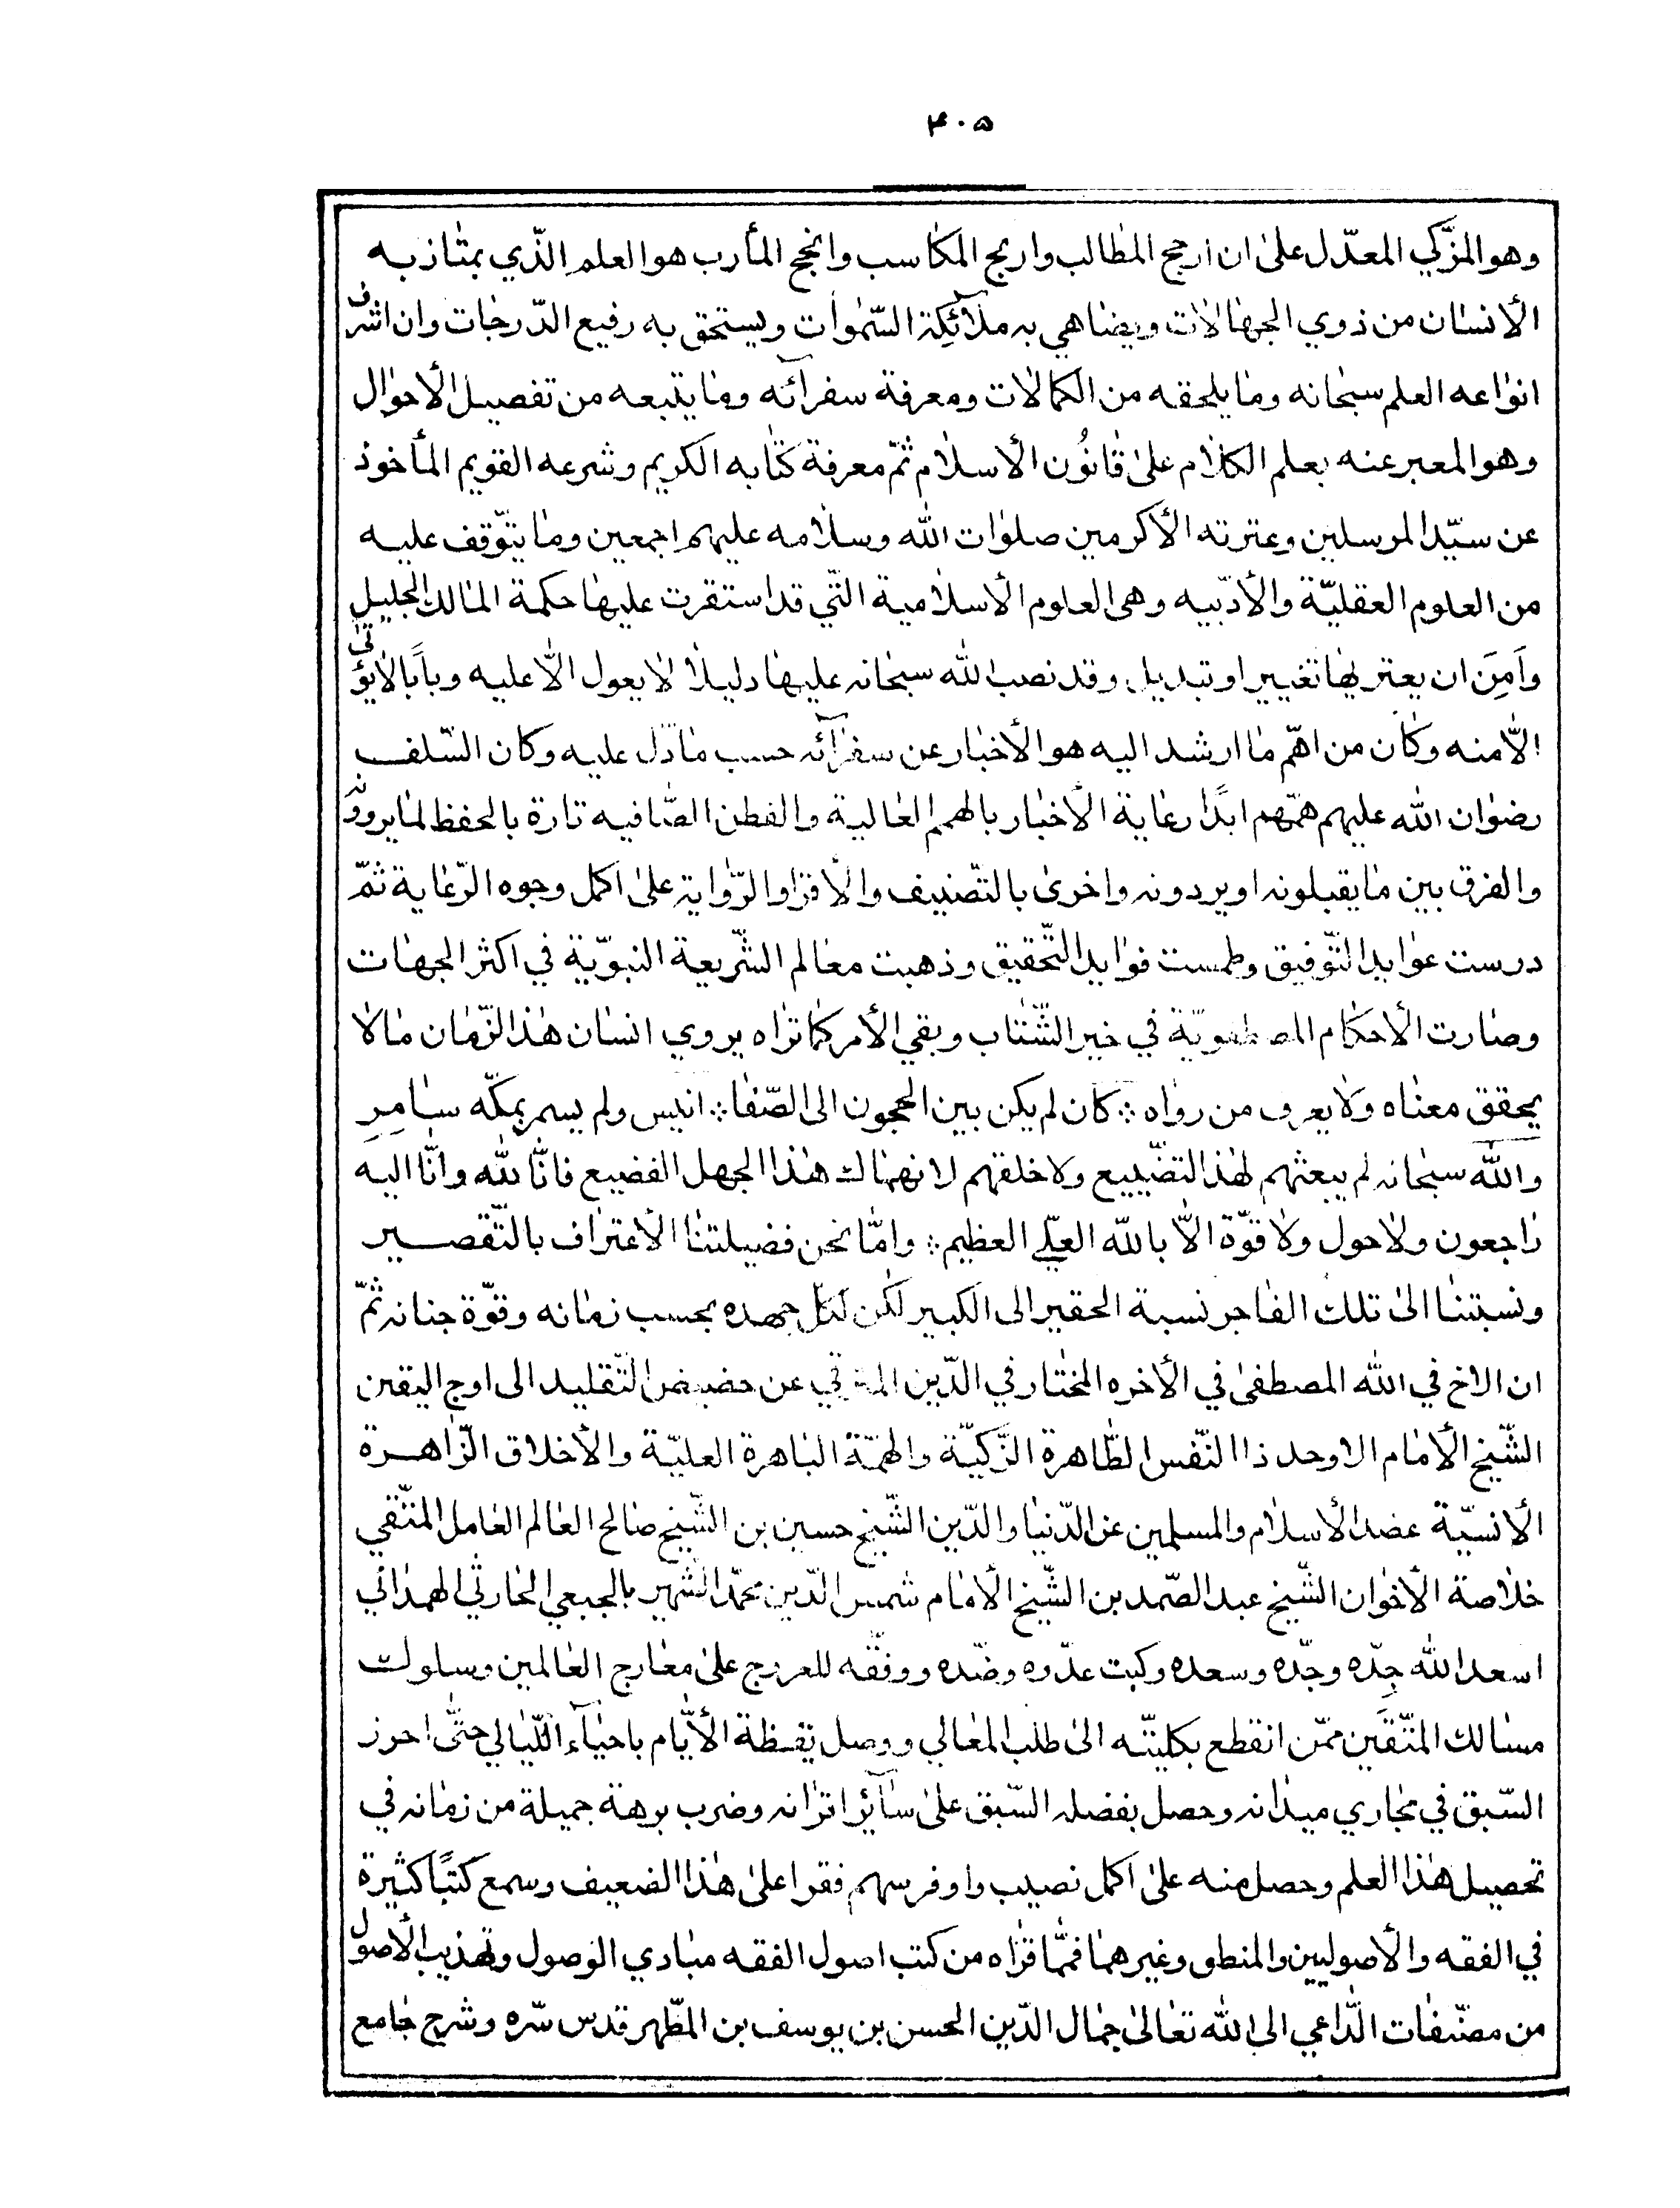 ۴۰۵
وهو المزّكي المعدّل على ان ارجح المطالب واربح المكاسب وانجح المأرب هو العلم الّذي يمتاز به
الأنسان من ذوي الجهالات ويضاهي به ملآئكة السّموات ويستحق به رفيع الدّرجات وان اشرف
انواعه العلم سبحانه وما يلحقه من الكمالات ومعرفة سفرآئه وما يتبعه من تفصيل الأحوال
وهو المعبر عنه بعلم الكلام على قانُون الأسلام ثمّ معرفة كتابه الكريم وشرعه القويم المأخوذ
عن سيّد المرسلين وعترته الأكرمين صلوات الله وسلامه عليهم اجمعين وما يتوّقف عليه
من العلوم العقليّة والأدّبيه وهى العلوم الأسلامية الّتي قد استقرت عليها حكمة المالك الجليل
وآمِنَ ان يعتريها تغيير او تبديل وقد نصب الله سبحانه عليها دليلاً لا يعول الّا عليه وباباً لا يؤتى
الّا منه وكان من اهمّ ما ارشد اليه هو الأخبار عن سفرآئه حسب ما دّل عليه وكان السّلف
رضوان الله عليهم همّهم ابدًا رعاية الأخبار بالهمم العالية والفطن الصّافيه تارة بالحفظ لما يروونه
والفرق بين ما يقبلونه او يردونه واخرى بالتّصنيف والأقرا والرّواية على اكمل وجوه الرّعاية ثمّ
درست عوايد التّوفيق وطمست فوايد التّحقيق وذهبت معالم الشّريعة النبوّية في اكثر الجهات
وصارت الأحكام المصطفويّة في خبر الشّتات وبقي الأمر كما تراه يروي انسان هذا الزّمان ما لا
يحقق معناه ولا يعرف من رواه ؞ كان لم يكن بين الحجون الى الصّفا ؞ انيس ولم يسمر بمكّه سامِرِ
والله سبحانه لم يبعثهم لهذا التضّييع ولا خلقهم لانهماك هذا الجهل الفضيع فانّا لله وانّا اليه
راجعون ولا حول ولا قوّة الّا بالله العلّي العظيم ؞ وامّا نحن ففضيلتنا الأعتراف بالتّقصير
ونسبتنا الى تلك الفاجر نسبة الحقير الى الكبير لكن لكلّ جهده بحسب زمانه وقوّة جنانه ثمّ
ان الاخ في الله المصطفى في الأخره المختار في الدّين المترقي عن حضيض التّقليد الى اوج اليقين
الشّيخ الأمام الاوحد ذا النّفس الطّاهرة الزّكيّة والهمّة الباهرة العليّة والأخلاق الزّاهرة
الأنسيّة عضد الأسلام والمسلمين عز الدّنيا والدّين الشّيخ حسين بن الشّيخ صالح العالم العامل المتّقي
خلاصة الأخوان الشّيخ عبد الصّمد بن الشّيخ الأمام شمس الدّين محمّد الشّهير بالجبعي الحارثي الهمداني
اسعد الله جِدّه وجّده وسعده وكبت عدّوه وضّده ووفّقه للعروج على معارج العالمين وسلوك
مسالك المتّقين ممّن انقطع بكليّته الى طلب المعالي ووصل يقظة الأيّام باحيآء اللّيالي حتّى احرز
السّبق في مجاري ميدانه وحصل بفضله السّبق على سآئر اترانه وضرب برهة جميلة من زمانه في
تحصيل هذا العلم وحصل منه على اكمل نصيب واوفر سهم فقرا على هذا الضعيف وسمع كتبًا كثيرة
في الفقه والأصوليين والمنطق وغيرهما فممّا قراه من كتب اصول الفقه مبادي الوصول وتهذيب الأصول
من مصنّفات الدّاعي الى الله تعالى جمال الدّين الحسن بن يوسف بن المطّهر قدس سّره وشرح جامع